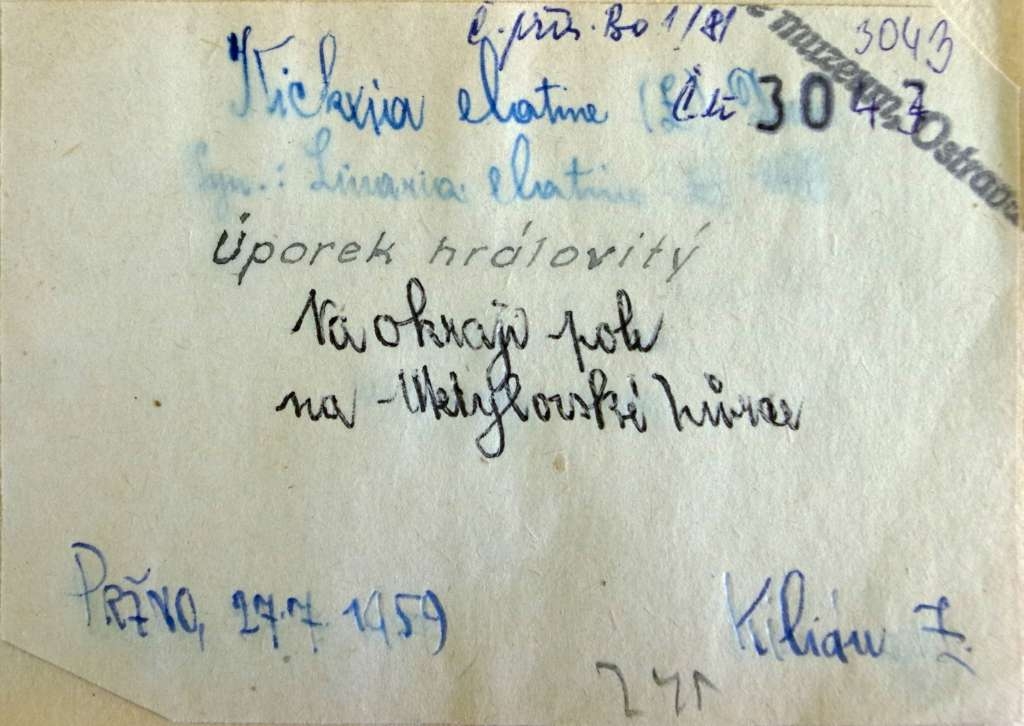 č. přís. Bo 1/81
3043
muzeum Ostrava
Kickxia elatine (L.
Čís 3043
Syn.: Linaria elatine
Úporek hrálovitý
Na okraji pole
na Metylovské hůrce
PRŽNO, 27.7. 1959
Kilián Z.